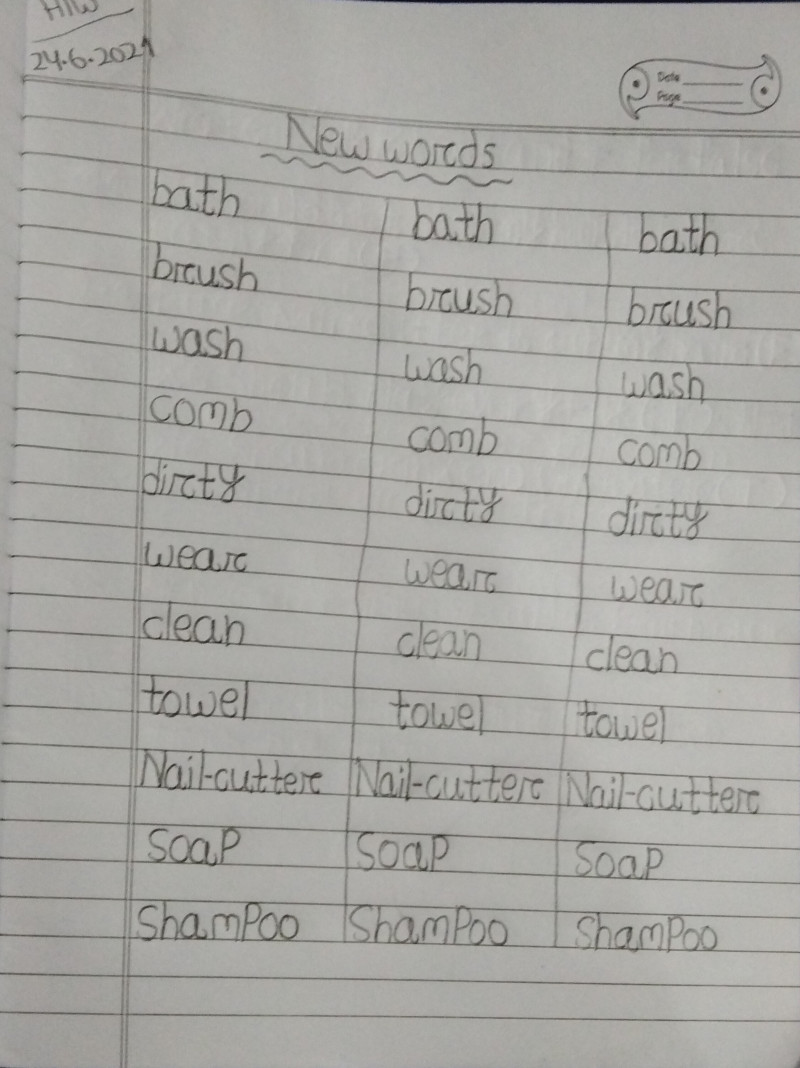 H/W
24.6.2021
Date
Page
New words
bath bath bath
brush brush brush
wash wash wash
comb comb comb
dirty dirty dirty
wear wear wear
clean clean clean
towel towel towel
Nail-cutter Nail-cutter Nail-cutter
Soap Soap Soap
ShamPoo ShamPoo ShamPoo